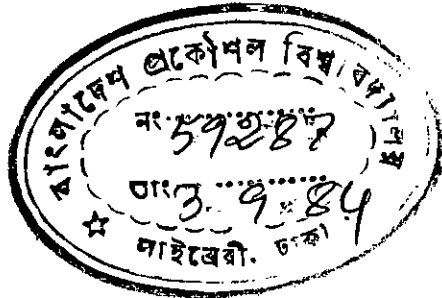 বাংলাদেশ প্রকৌশল বিশ্ববিদ্যালয়
নং 59287
তাং 3.9.84
লাইব্রেরী. ঢাকা